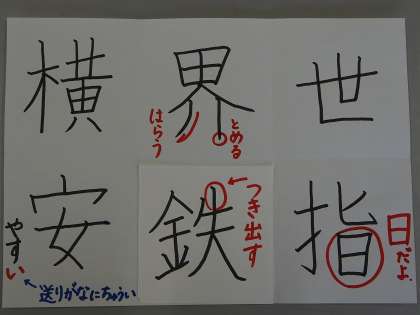 世
界
はらう
とめる
横
指
日だよ.
鉄
つき出す
安
やすい
送りがなにちゅうい